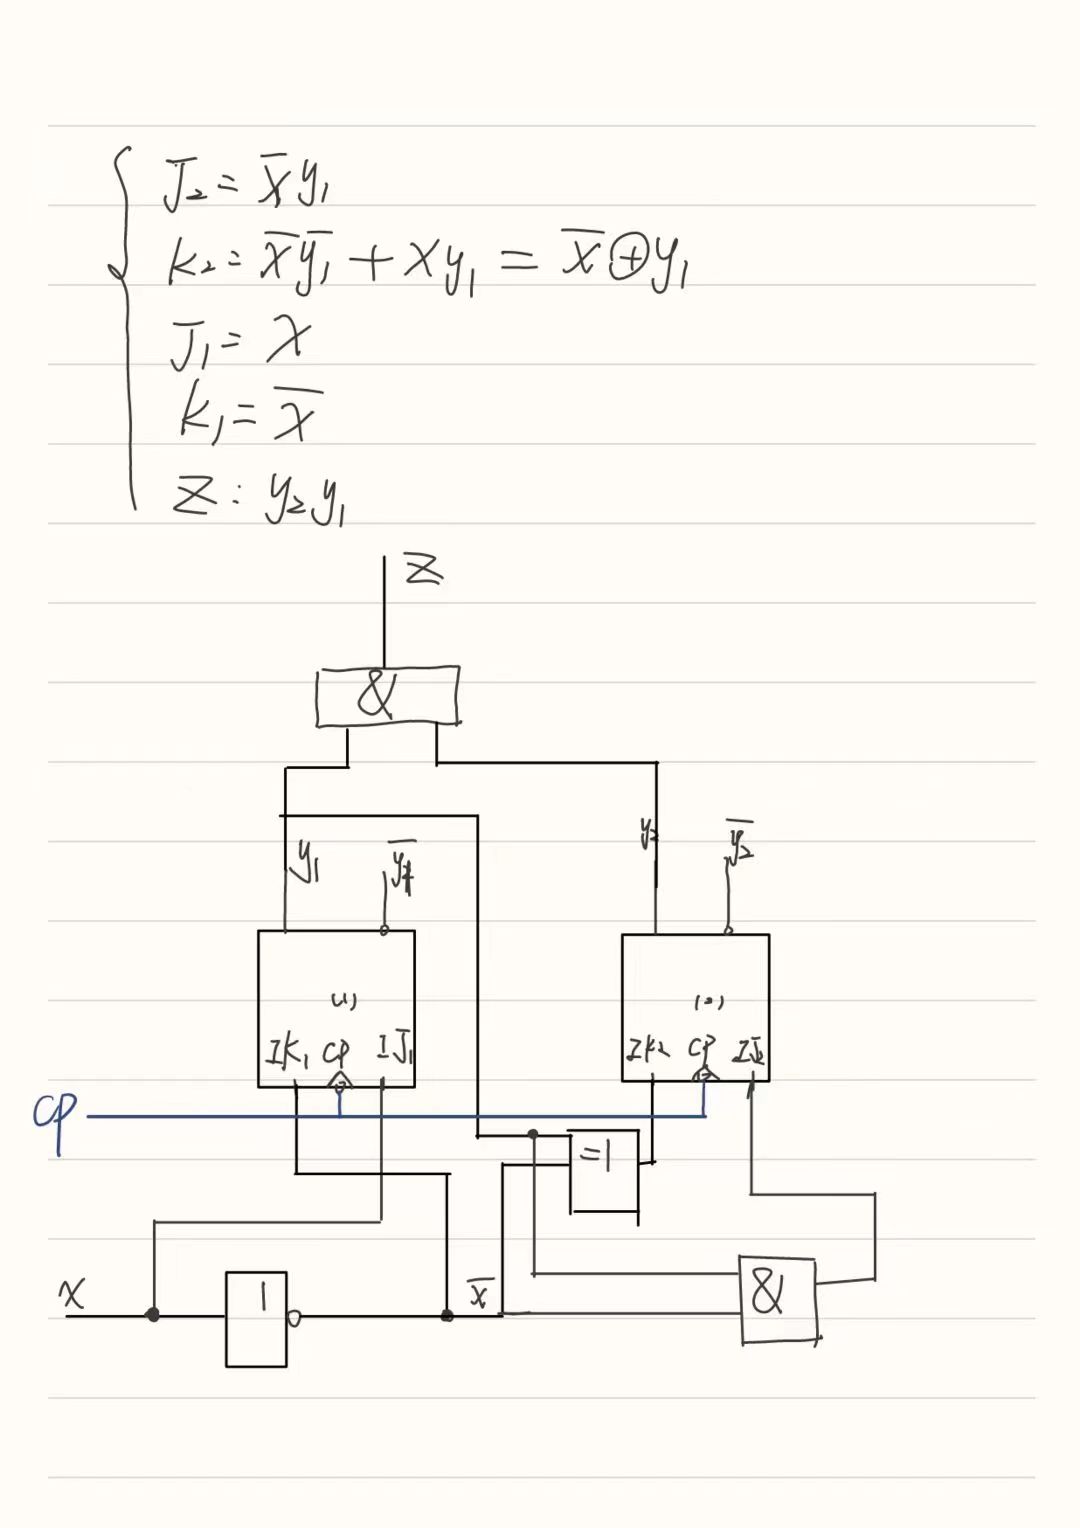 J₂ = x̅y₁
K₂ = x̅y̅₁ + xy₁ = x̅⊕y₁
J₁ = x
K₁ = x̅
Z : y₂y₁
Z
&
y₁ y̅₁ y₂ y̅₂
(1) (2)
IK₁ CP IJ₁ IK₂ CP IJ₂
CP
=1
x 1 x̅ &